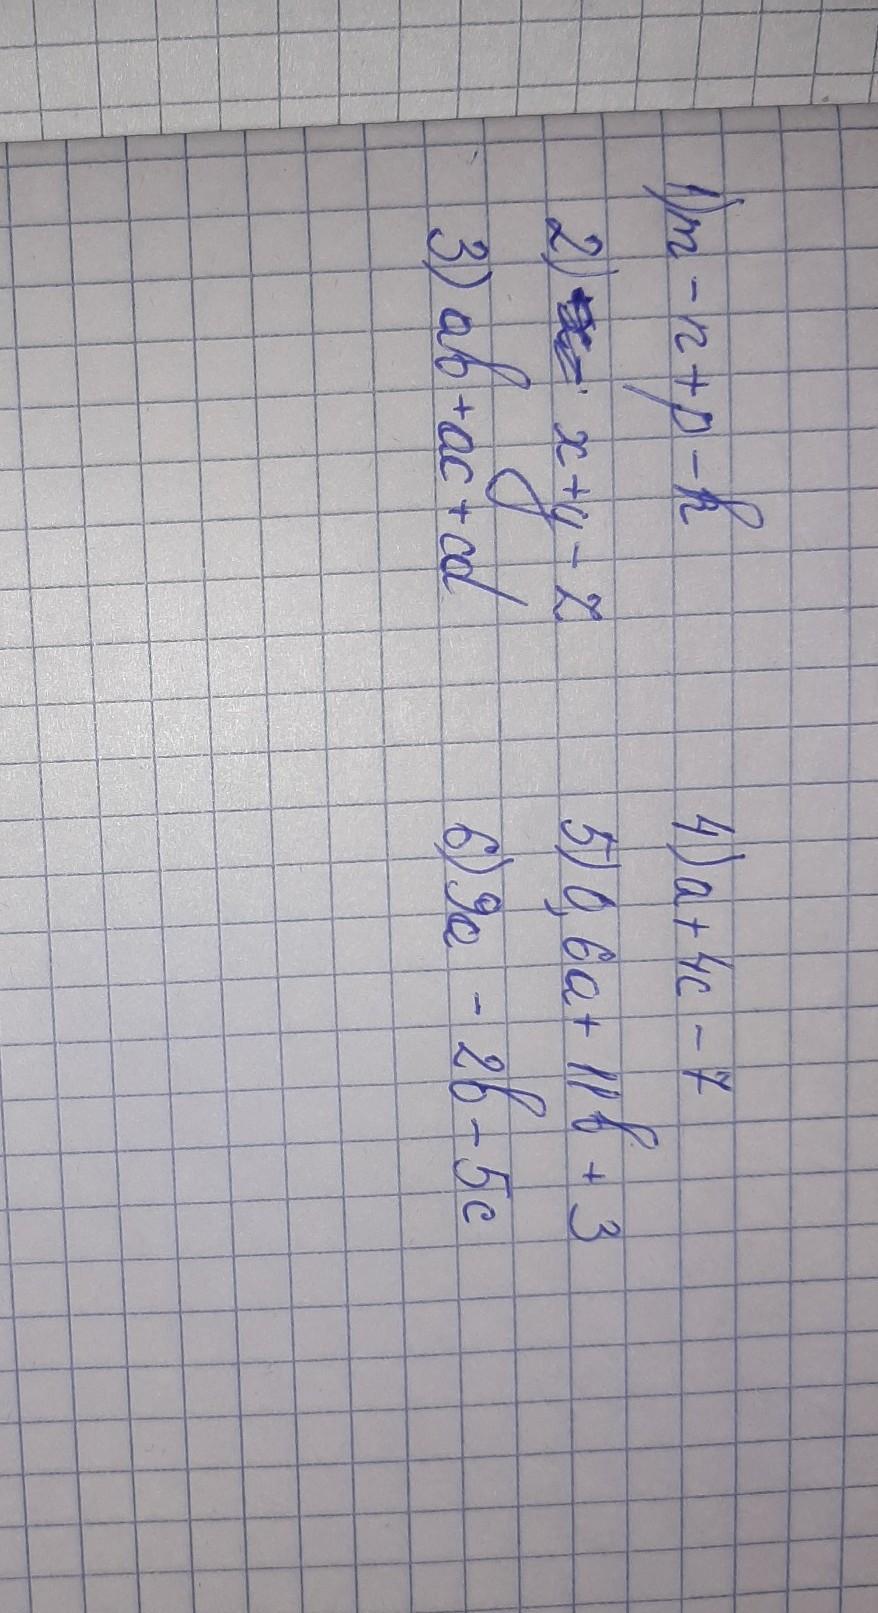 1) m - n + p - k
2) x + y - z
3) ab + ac + cd
4) a + 4c - 7
5) 0,6a + 11b + 3
6) 9a - 2b - 5c